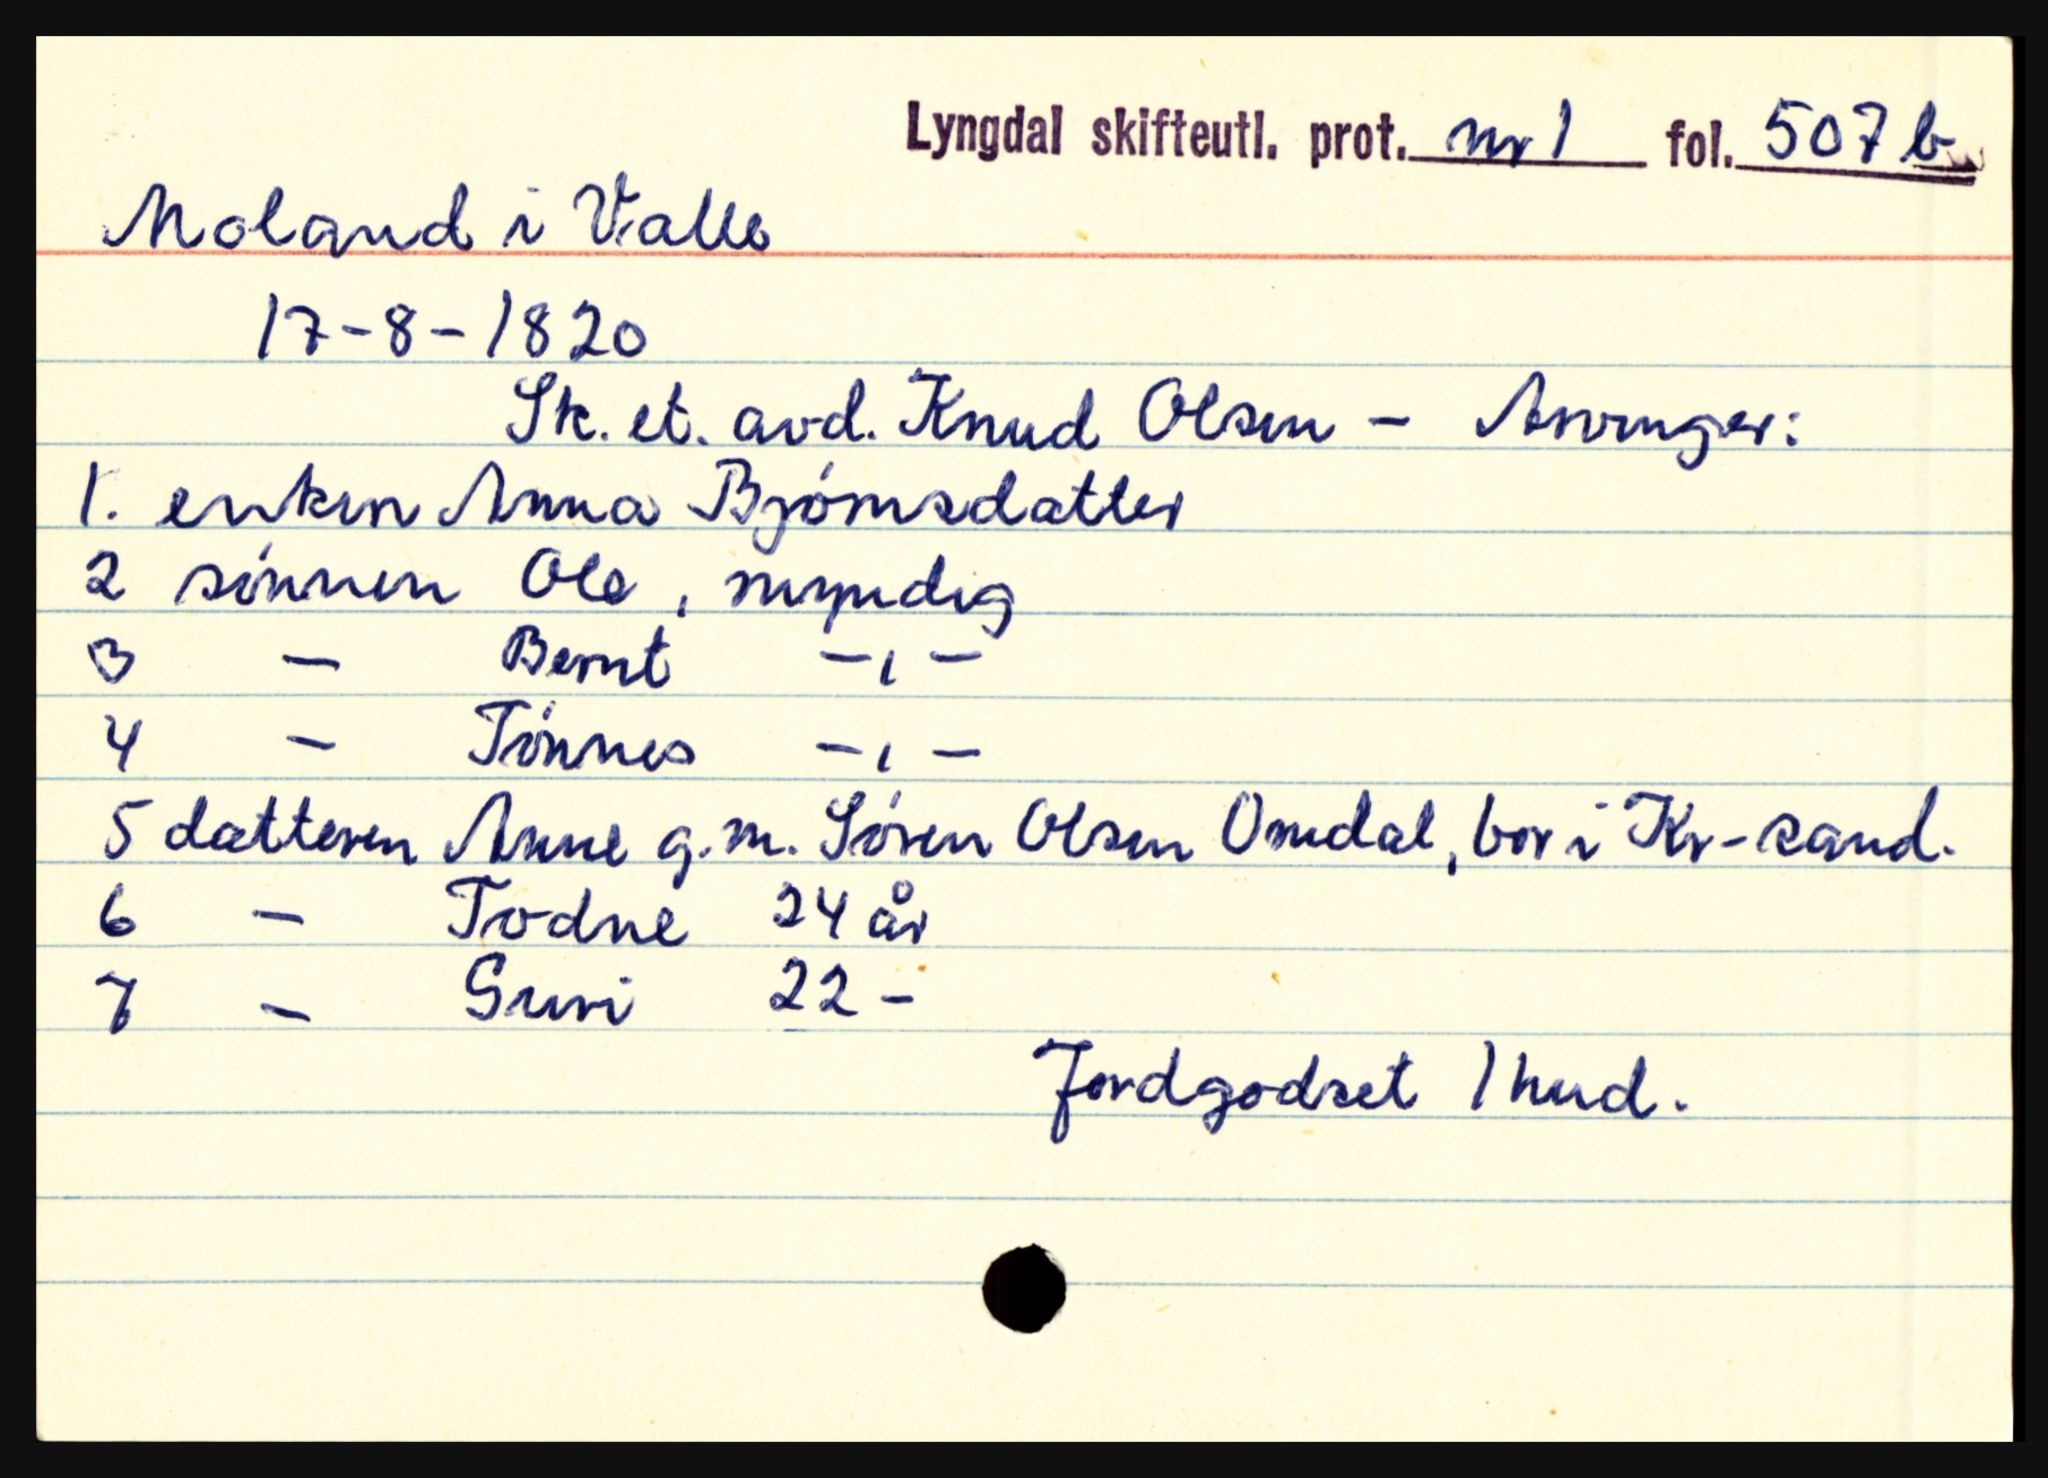 Lyngdal skifteutl. prot. nr 1 fol. 507 b
Moland i Valle
17-8-1820
Sk. et. avd. Knud Olsen - Arvinger:
1. enken Anna Bjørnsdatter
2 sønnen Ole, myndig
3 - Bernt -,-
4 - Tønnes -,-
5 datteren Anne g.m. Søren Olsen Omdal, bor i Kr-sand.
6 - Todne 24 år
7 - Guri 22 -
Jordgodset 1 hud.